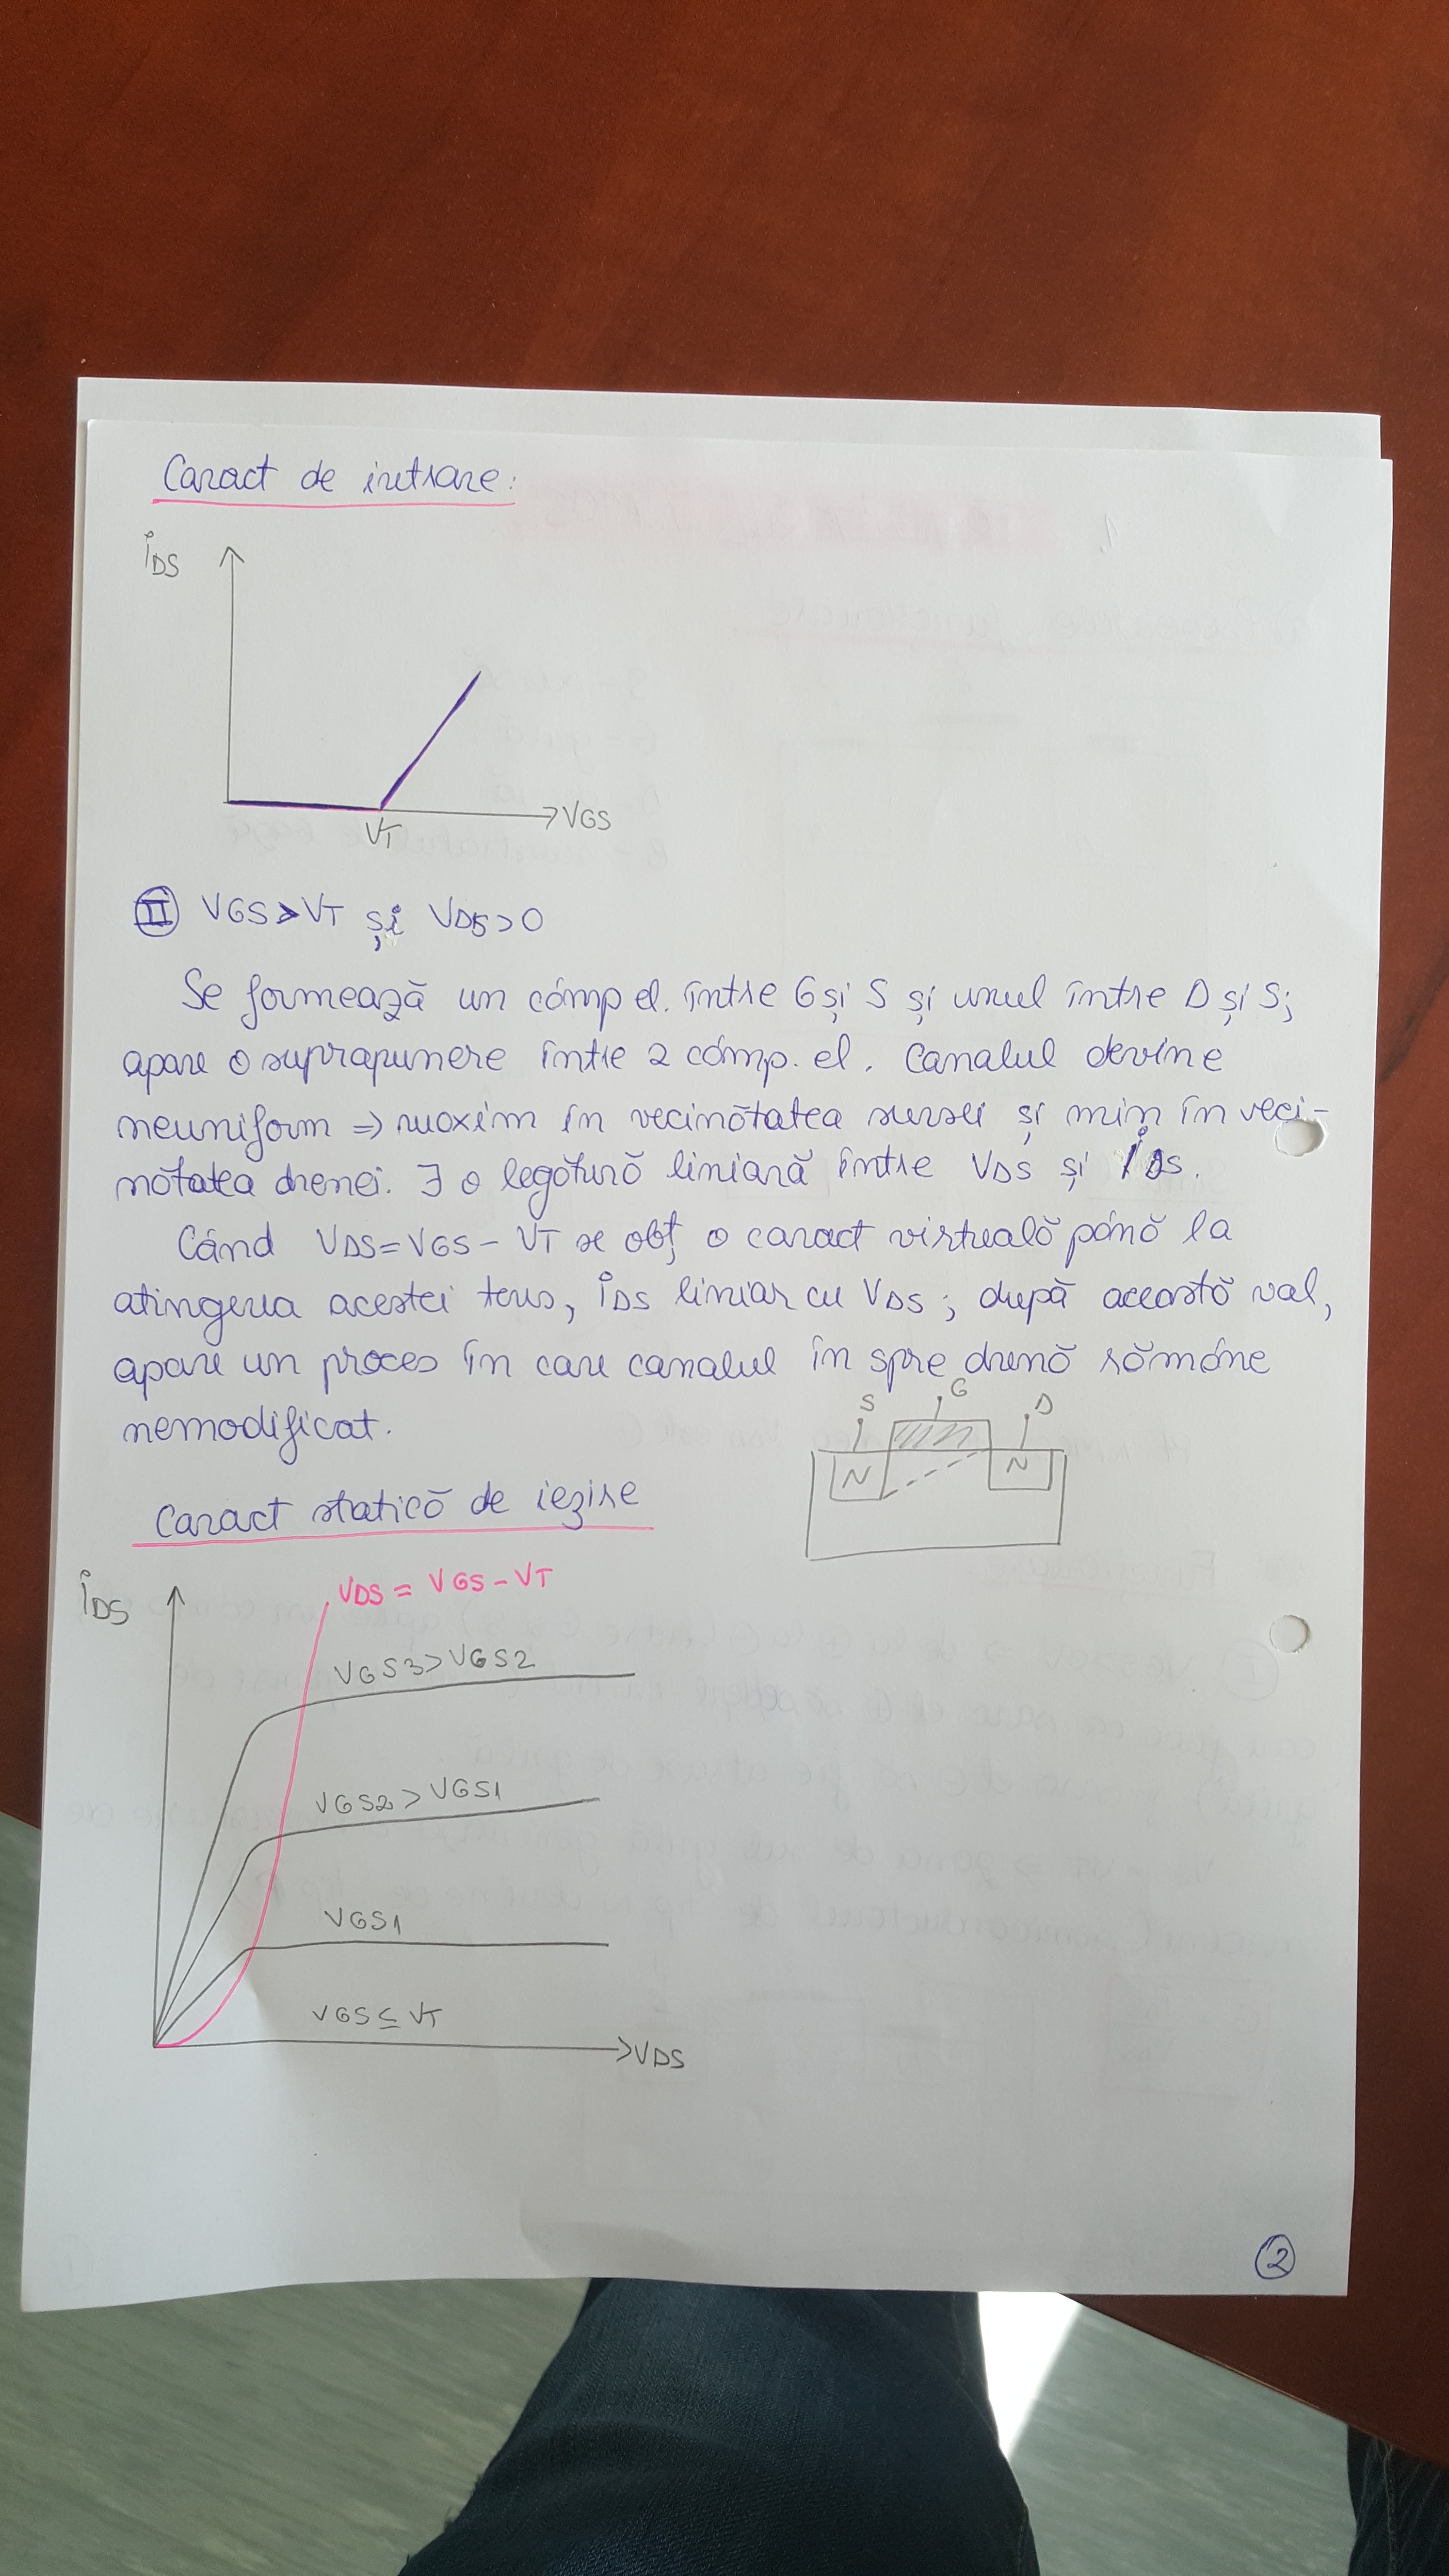 Caract de intrare:
iDS
VT
VGS
II VGS>VT și VDS>0
Se formează un câmp el. între G și S și unul între D și S;
apare o suprapunere între 2 câmp. el. Canalul devine
neuniform => maxim în vecinătatea sursei și min în veci-
nătatea drenei. ∃ o legătură liniară între VDS și iDS.
Când VDS=VGS-VT se obț o caract virtuală până la
atingerea acestei tens, iDS liniar cu VDS; după această val,
apare un proces în care canalul în spre drenă rămâne
nemodificat.
S G D
N N
Caract statică de ieșire
iDS
VDS = VGS-VT
VGS3>VGS2
VGS2>VGS1
VGS1
VGS≤VT
VDS
2